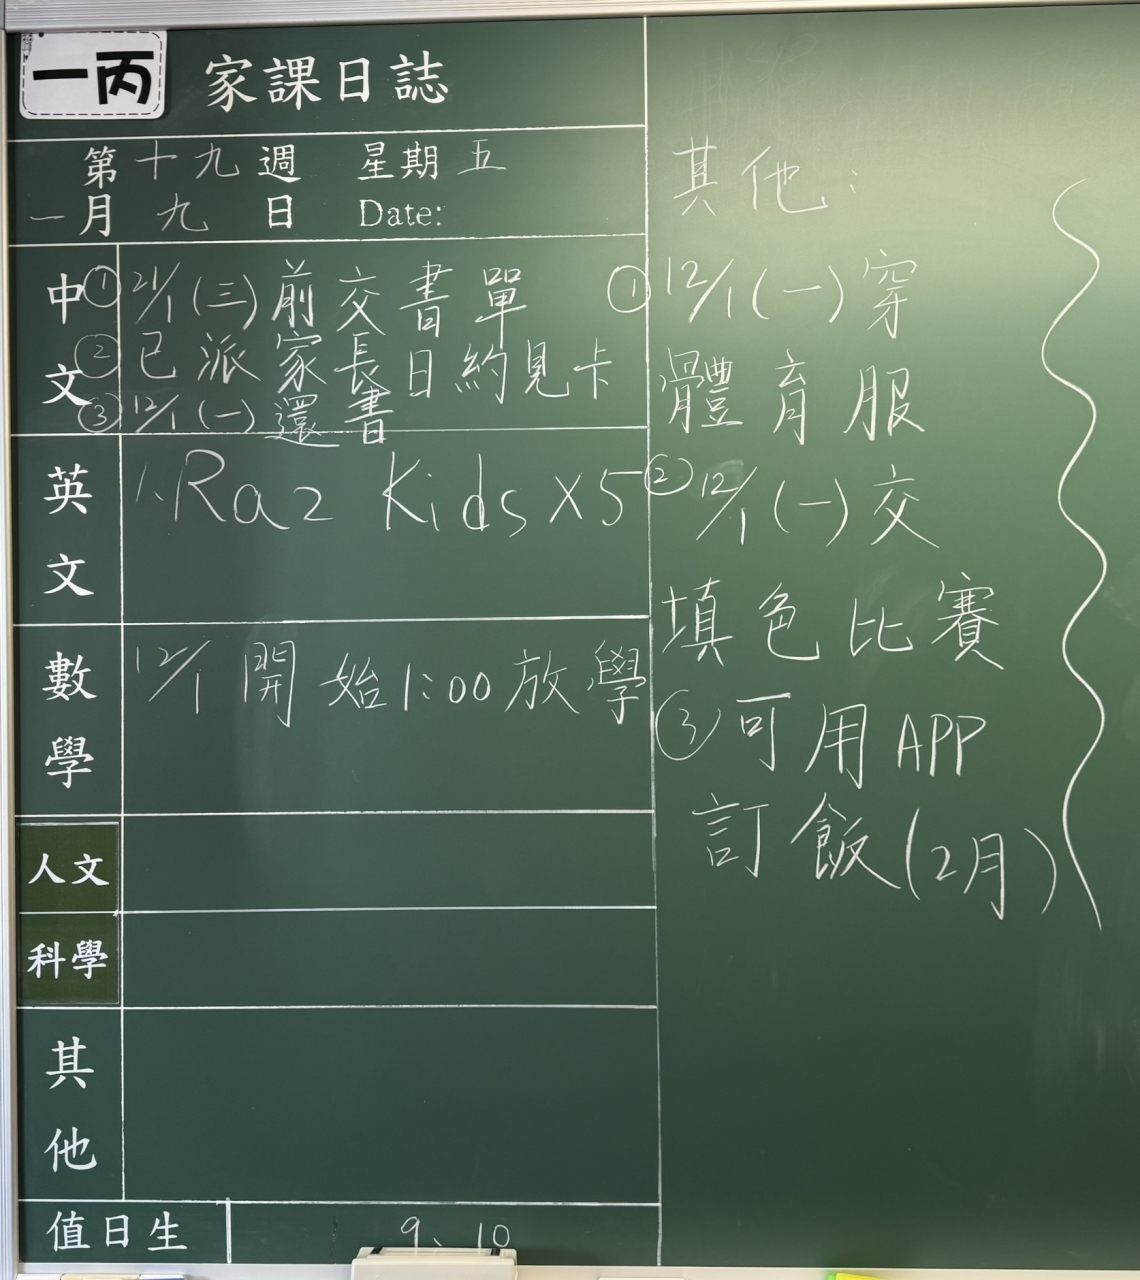 一丙 家課日誌
第十九週 星期五
一月九日 Date:
中文
① 21/1(三)前交書單
② 已派家長日約見卡
③ 12/1(一)還書
英文
1、Raz Kids x5
數學
12/1 開始1:00放學
人文
科學
其他
值日生 9、10
其他:
① 12/1(一)穿
體育服
② 12/1(一)交
填色比賽
③ 可用APP
訂飯(2月)